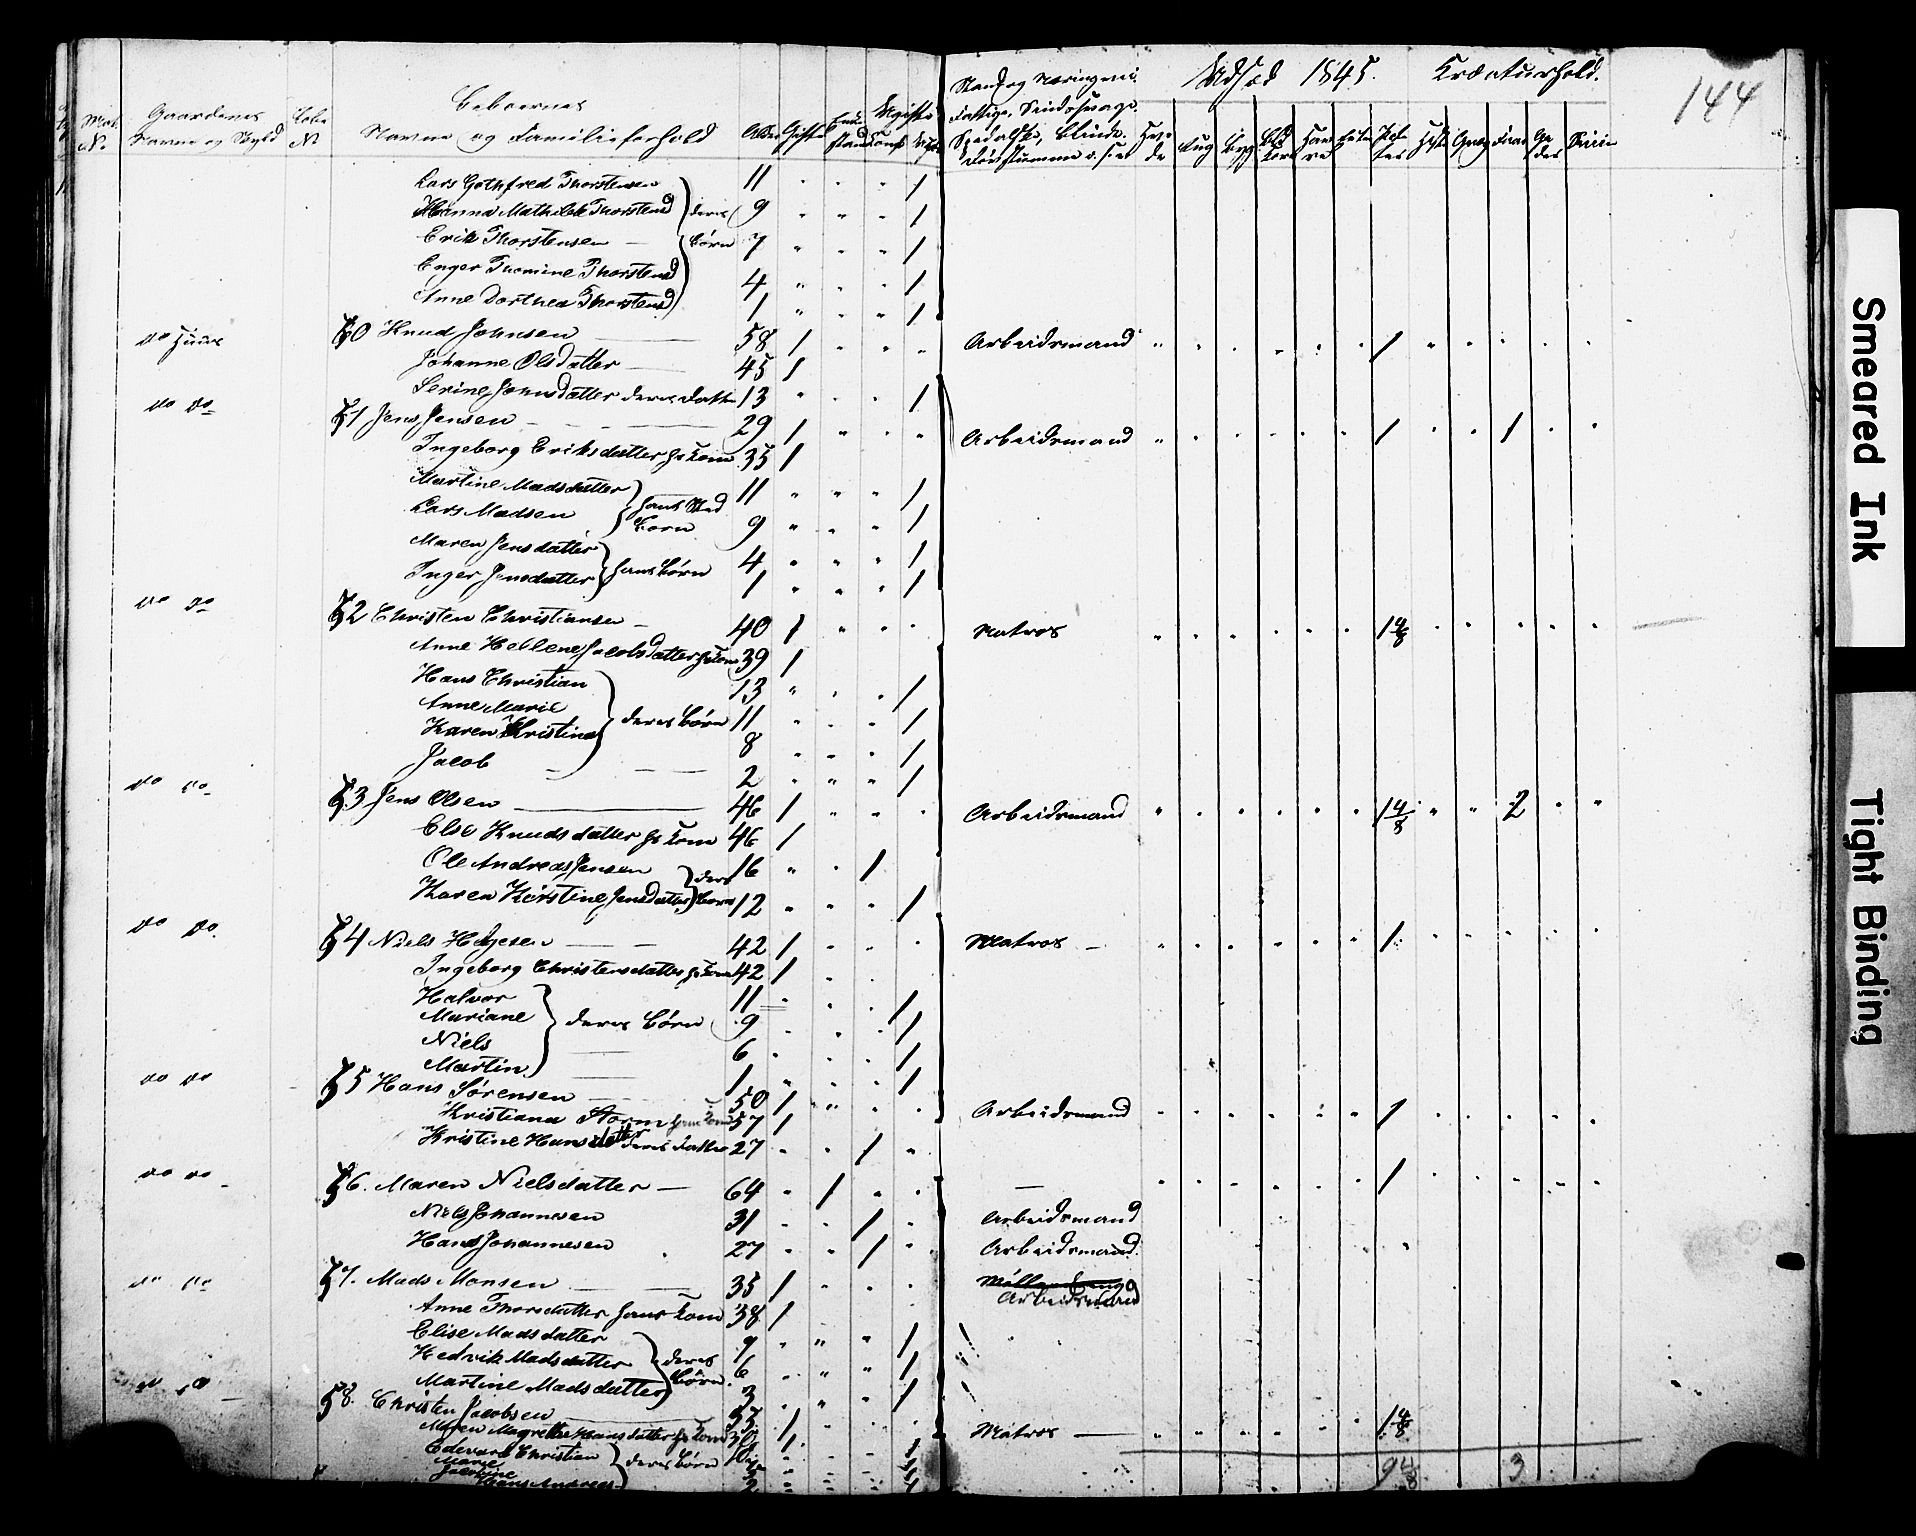 144
Udsæd 1845. Kreaturhold.
Gaardenes Navne og Skyld
Beboernes Navne og Familieforhold
Lars Gothfred Thorstensen 11 1
Hanna Mathilde Thorstensd 9 1
Erik Thorstensen 7 1
Enger Thomine Thorstensd 4 1
Anne Dorthea Thorstensd 1 1
deres Børn
do Huus 50 Knud Johnsen 58 1 Arbeidsmand 1
Johanne Olsdatter 45 1
Serine Johnsdatter deres Datter 13 1
do do 51 Jens Jensen 29 1 Arbeidsmand 1 1
Ingeborg Eriksdatter hs Kone 35 1
Martine Madsdatter 11 1
Lars Madsen 9 1
hans Sted Børn
Maren Jensdatter 4 1
Inger Jensdatter 1 1
hans Børn
do do 52 Christen Christiansen 40 1 Matros 1 4/8
Anne Hellene Jacobsdatter hs Kone 39 1
Hans Christian 13 1
Anne Marie 11 1
Karen Kristine 8 1
Jacob 2 1
deres Børn
do do 53 Jens Olsen 46 1 Arbeidsmand 1 4/8 2
Else Knudsdatter hs Kone 46 1
Ole Andreas Jensen 16 1
Karen Kirstine Jensdatter 12 1
deres Børn
do do 54 Niels Helgesen 42 1 Matros 1
Ingeborg Christensdatter hs Kone 42 1
Halvor 11 1
Mariane 9 1
Niels 6 1
Martin 1 1
deres Børn
do do 55 Hans Sørensen 50 1 Arbeidsmand 1
Kristiana Storm hans Kone 57 1
Kristine Hansdatter deres Datter 27 1
do do 56. Maren Nielsdatter 64 1 1
Niels Johannesen 31 1 Arbeidsmand
Hans Johannesen 27 1 Arbeidsmand
do do 57. Mads Monsen 35 1 Arbeidsmand
Anne Thorsdatter hans Kone 38 1
Elise Madsdatter 9 1
Hedvik Madsdatter 6 1
Martine Madsdatter 3 1
deres Børn
do do 58. Christen Jacobsen 1 Matros 1 4/8
Maren Magrethe Hansdatter hs Kone 1
Edevard Christian
Marie
deres Børn
9 3
Smeared Ink
Tight Binding